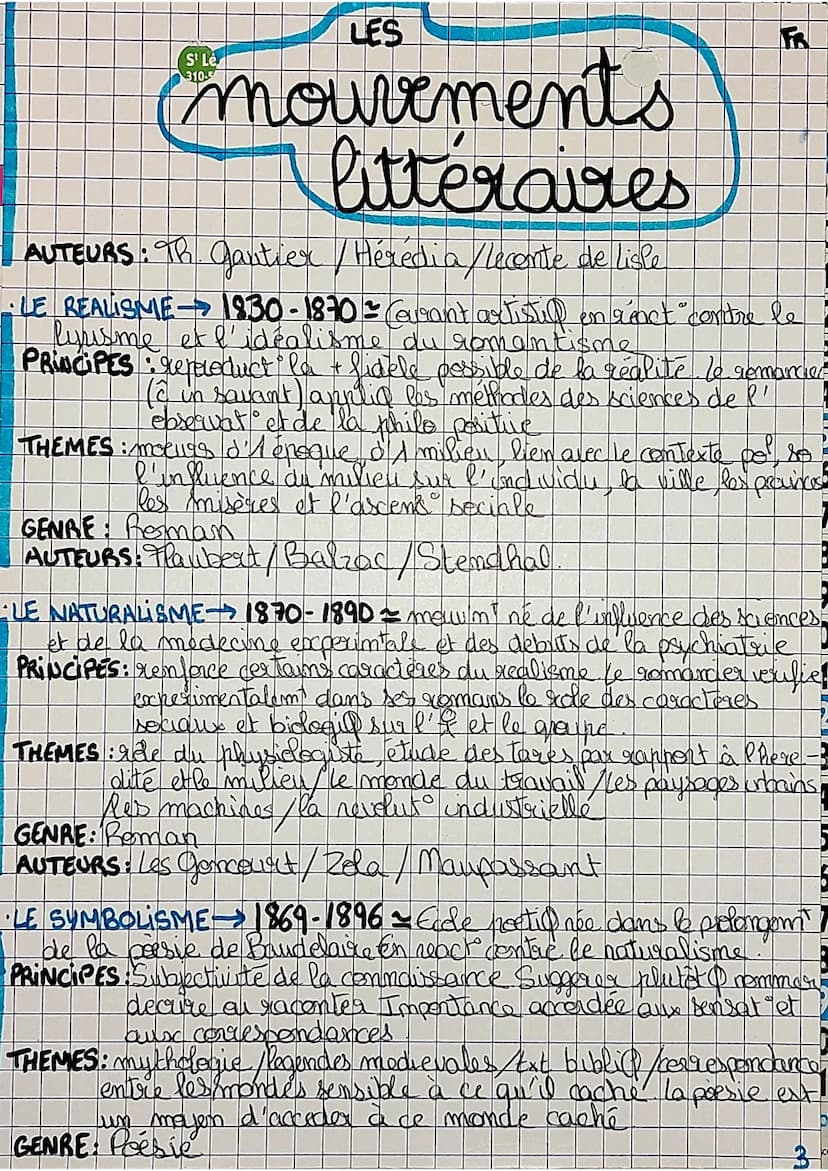 LES
FR
St Lé
310-
mouvements
littéraires
AUTEURS : Th. Gautier / Hérédia / Leconte de Lisle
· LE REALISME → 1830 - 1870 ≃ Courant artistiq en réact° contre le
lyrisme et l'idéalisme du romantisme
PRINCIPES : reproduct° la + fidèle possible de la réalité. Le romancier
(c̄ un savant) appliq les méthodes des sciences de l'
observat° et de la philo positive
THEMES : moeurs d'1 époque, d'1 milieu, lien avec le contexte pol,
l'influence du milieu sur l'individu, la ville, les
les misères et l'ascens° sociale
GENRE : Roman
AUTEURS : Flaubert / Balzac / Stendhal.
· LE NATURALISME → 1870 - 1890 ≃ mouvmt né de l'influence des sciences
et de la médecine et des débuts de la psychiatrie
PRINCIPES : renforce certains caractères du realisme le romancier verifie
dans ses romans le role des caractères
sociaux et biologiq sur l' et le groupe.
THEMES : rôle du physiologiste, étude des tares par rapport à l'héré-
dité et le milieu / le monde du travail / les paysages urbains
les machines / la revolut° industrielle
GENRE : Roman
AUTEURS : Les Goncourt / Zola / Maupassant
· LE SYMBOLISME → 1869 - 1896 ≃ Ecole poetiq née dans le prolongemt
de la poesie de Baudelaire En react° contre le naturalisme.
PRINCIPES : Subjectivité de la connaissance Suggerer plutôt q nommer
decrire ou raconter Importance accordée aux sensat° et
aux correspondances.
THEMES : mythologie / legendes medievales / txt bibliq / correspondance
entre les mondes sensible à ce qu'il cache. la poesie est
un moyen d'acceder à ce monde caché
GENRE : Poésie
3